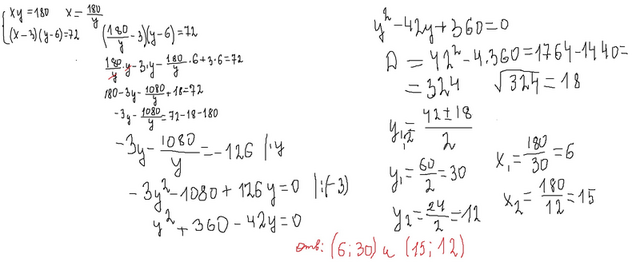 {xy=180 x=180/y
(x-3)(y-6)=72
(180/y-3)(y-6)=72
180/y·y-3·y-180/y·6+3·6=72
180-3y-1080/y+18=72
-3y-1080/y=72-18-180
-3y-1080/y=-126 |·y
-3y²-1080+126y=0 |:(-3)
y²+360-42y=0
y²-42y+360=0
D=42²-4·360=1764-1440=
=324 √324=18
y₁,₂=42±18/2
y₁=60/2=30
y₂=24/2=12
x₁=180/30=6
x₂=180/12=15
отв: (6;30) и (15;12)